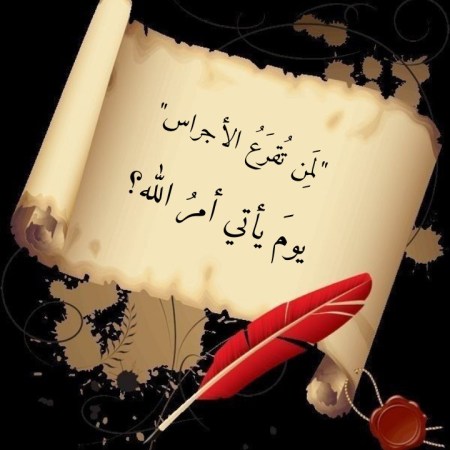 "لَمِن تُقرَعُ الأجراس"
يومَ يأتي أمرُ الله؟